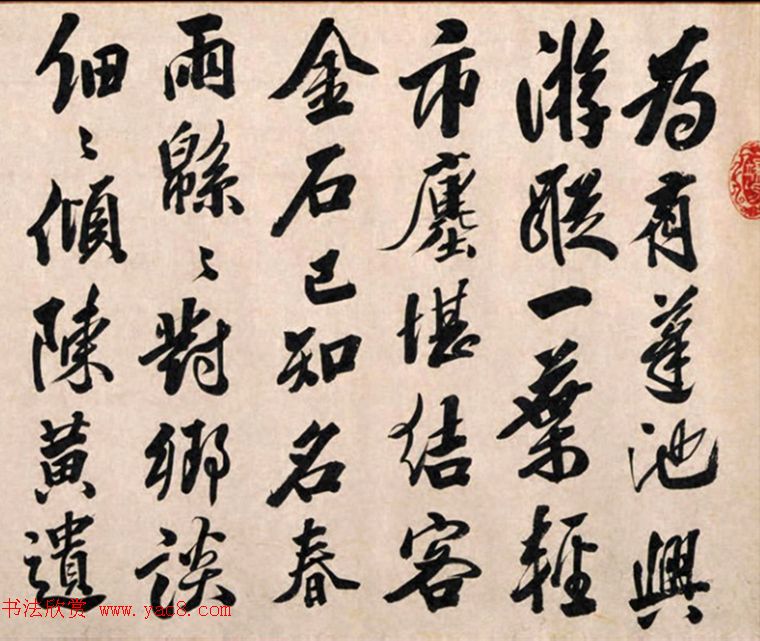 為有蓮池興
游蹤一葉輕
市廛堪結客
金石已知名春
雨緜〻對鄉談
細〻傾陳黃遺
书法欣赏 www.yac8.com